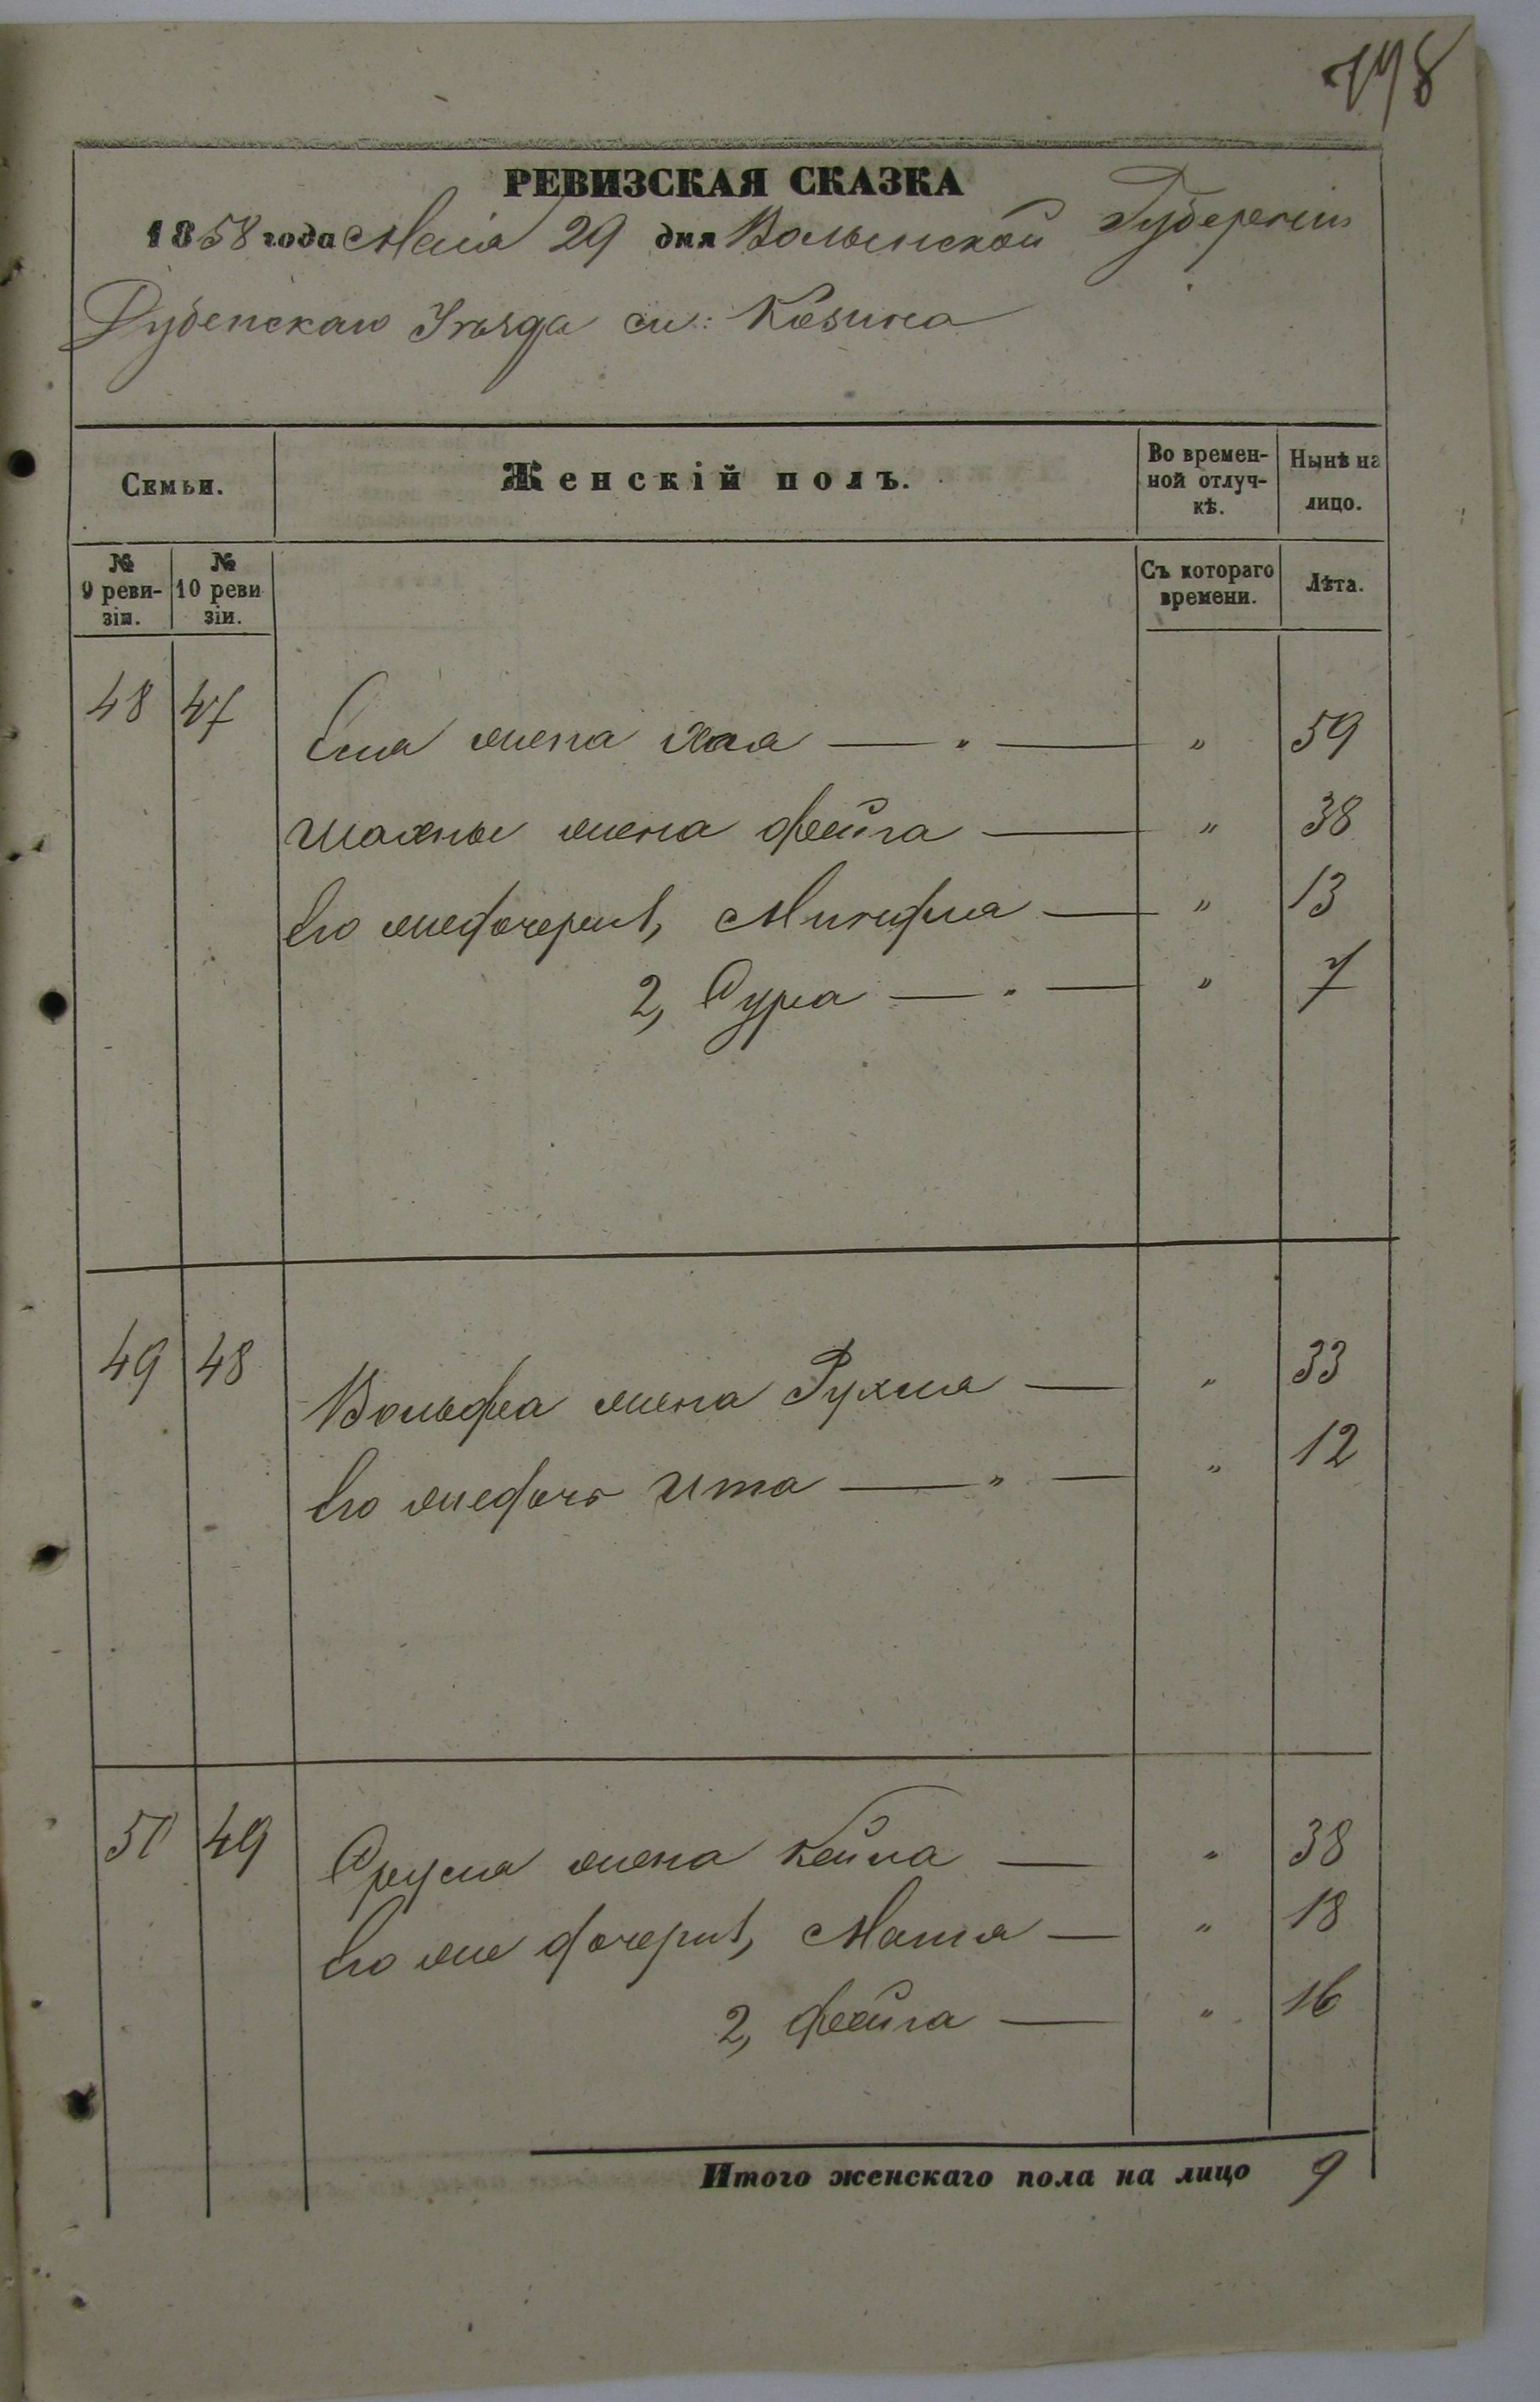 798
РЕВИЗСКАЯ СКАЗКА
1858 года Маія 29 дня Волынской Губерніи
Дубенскаго Уѣзда м: Козина
Семьи.
Женскій полъ.
Во времен-
ной отлуч-
кѣ.
Нынѣ на
лицо.
№
9 реви-
зіи.
№
10 реви
зіи.
Съ котораго
времени.
Лѣта.
48 47 жена Хая — „ — „ 59
Шахны жена Фейга — „ 38
Его же дочери 1, — „ 13
2, Сура — „ — „ 7
49 48 Вольфа жена Рухля — „ 33
Его же дочь Ита — „ — „ 12
50 49 Сруля жена Кейла — „ 38
Его же дочери 1, — „ 18
2, Фейга — „ 16
Итого женскаго пола на лицо 9